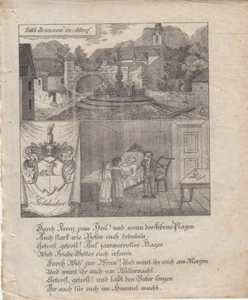 Tells Brunnen in Altorf.
Durch Kreuz zum Heil! und wenn des Lebens Plagen
Auch stark wie
Getrost, getrost! Auf jammervolles Klagen
Wird Friede Gottes euch erfreun.
Durch Weh' zur Wonne! Und weint ihr auch am Morgen
Und weint ihr auch vor Mitternacht.
Getrost, getrost! und laßt den Vater sorgen
Der auch für euch im Himmel wacht.